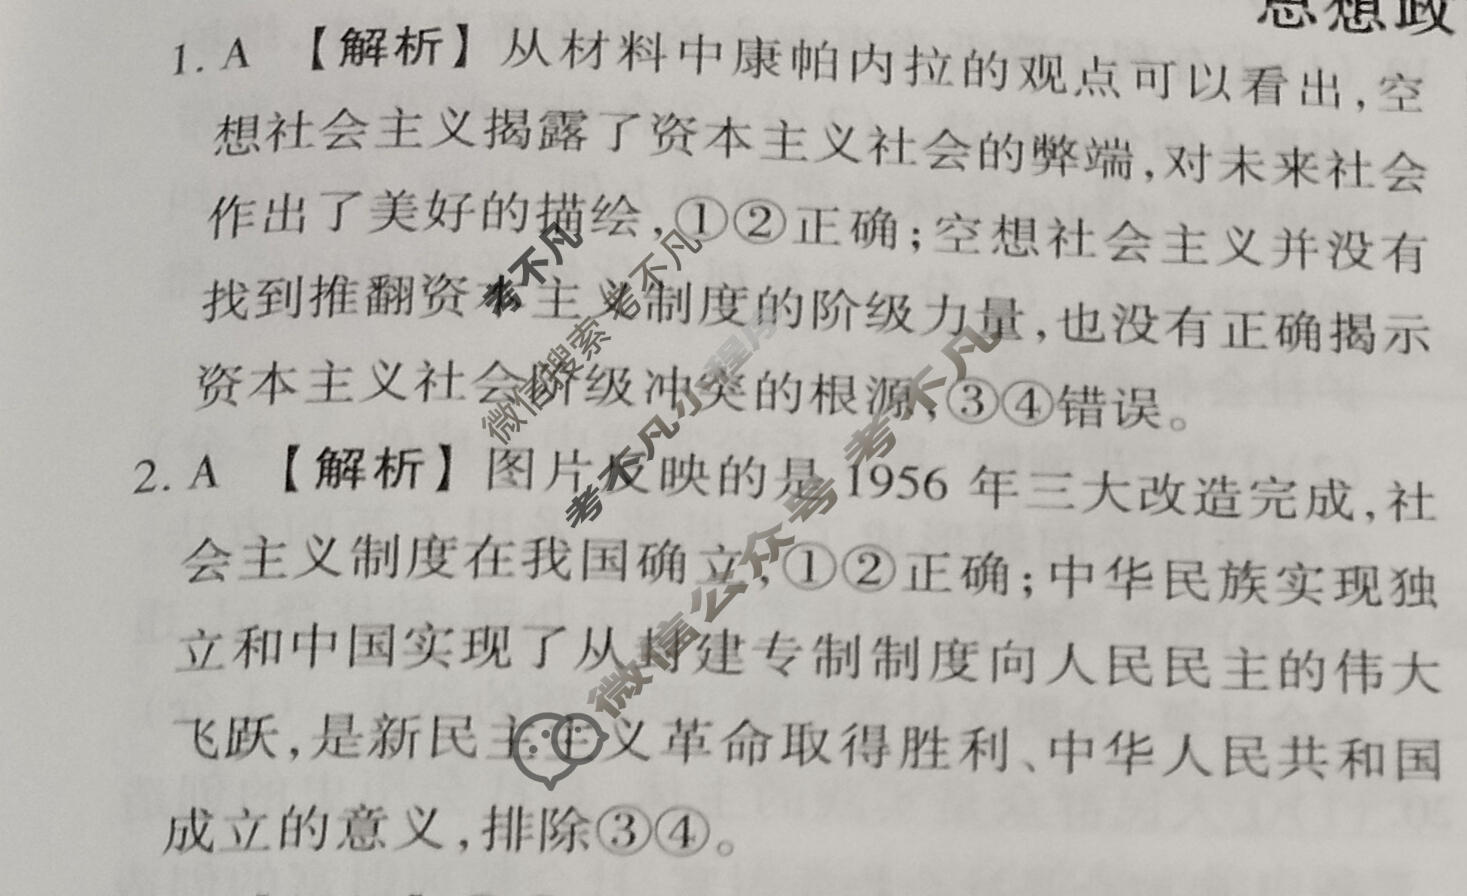 思想政
1. A 【解析】从材料中康帕内拉的观点可以看出,空
想社会主义揭露了资本主义社会的弊端,对未来社会
作出了美好的描绘,①②正确;空想社会主义并没有
找到推翻资本主义制度的阶级力量,也没有正确揭示
资本主义社会阶级冲突的根源,③④错误。
2. A 【解析】图片反映的是 1956 年三大改造完成,社
会主义制度在我国确立,①②正确;中华民族实现独
立和中国实现了从封建专制制度向人民民主的伟大
飞跃,是新民主主义革命取得胜利、中华人民共和国
成立的意义,排除③④。
考不凡
微信搜索 考不凡
考不凡小程序
微信公众号 考不凡